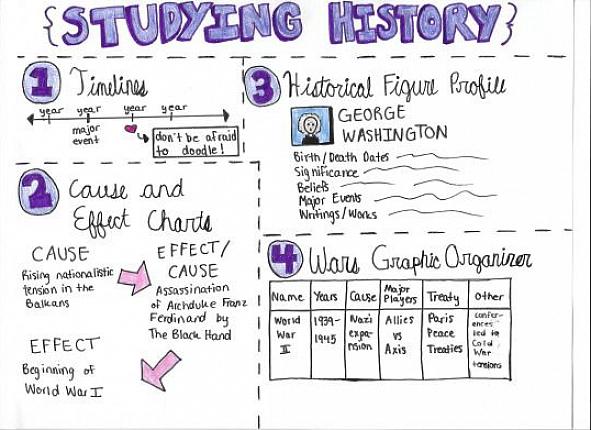 {STUDYING HISTORY}
1 Timelines
year year year year
major
event
don't be afraid
to doodle!
2 Cause and
Effect Charts
CAUSE
Rising nationalistic
tension in the
Balkans
EFFECT/
CAUSE
Assassination
of Archduke Franz
Ferdinand by
The Black Hand
EFFECT
Beginning of
World War I
3 Historical Figure Profile
GEORGE
WASHINGTON
Birth/Death Dates
Significance
Beliefs
Major Events
Writings/Works
4 Wars Graphic Organizer
Name Years Cause Major Players Treaty Other
World
War
II
1939-
1945
Nazi
expa-
nsion
Allies
vs
Axis
Paris
Peace
Treaties
confer-
ences
led to
Cold
War
tensions